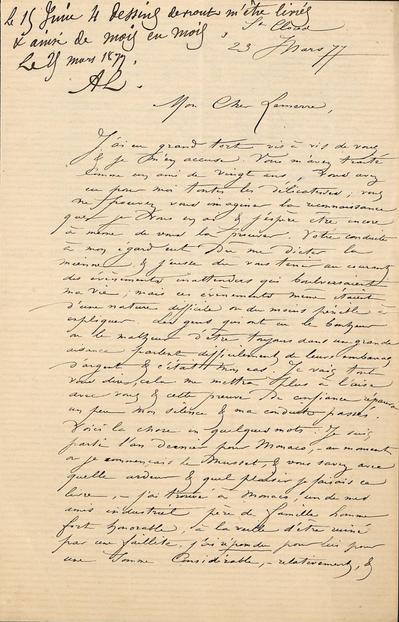 le 15 Juin 4 dessins devront m'être livrés
& ainsi de mois en mois.
Le 25 mars 1877
AL
St Cloud
23 Mars 77
Mon Cher Lemerre,
J'ai eu grand tort vis à vis de vous
& je m'en accuse. Vous m'avez traité
comme un ami de vingt ans, vous avez
eu pour moi toutes les délicatesses ; vous
ne pouvez vous imaginer la reconnaissance
que je vous en ai & j'espère être encore
à même de vous la prouver. Votre conduite
à mon égard eut dû me dicter la
mienne & j'eusse dû vous tenir au courant
des événements inattendus qui bouleversaient
ma vie ; mais ces événements même étaient
d'une nature difficile ou du moins pénible à
expliquer. Les gens qui ont eu le bonheur
ou le malheur d'être toujours dans une grande
aisance parlent difficilement de leurs embarras
d'argent & c'était mon cas. Je vais tout
vous dire, cela me mettra plus à l'aise
avec vous & cette preuve de confiance réparera
un peu mon silence & ma conduite passés.
Voici la chose en quelques mots : Je suis
parti l'an dernier pour Monaco, - au moment
où je commençais le Musset, & vous savez avec
quelle ardeur & quel plaisir je faisais ce
livre, - j'ai trouvé à Monaco, un de mes
amis industriel père de famille homme
fort honorable, à la veille d'être ruiné
par une faillite, j'ai répondu pour lui pour
une somme considérable, - relativement, &